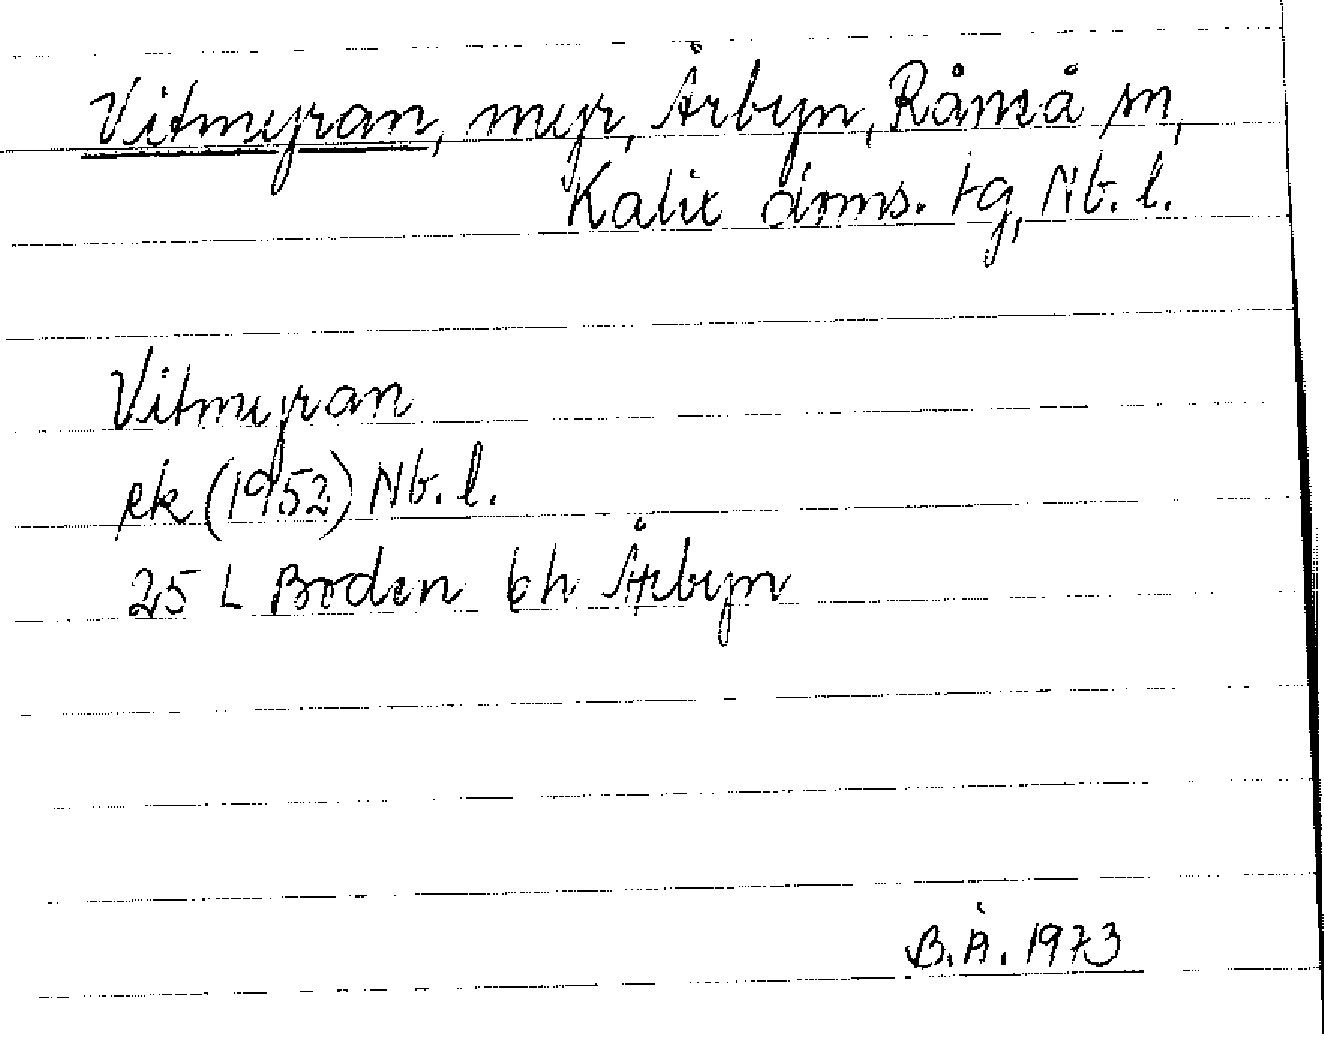 Vitmyran, myr, Årbyn, Råneå sn,
Kalix doms. tg, Nb. l.
Vitmyran
ek (1952) Nb. l.
25 L Boden 6h Årbyn
B.Å. 1973